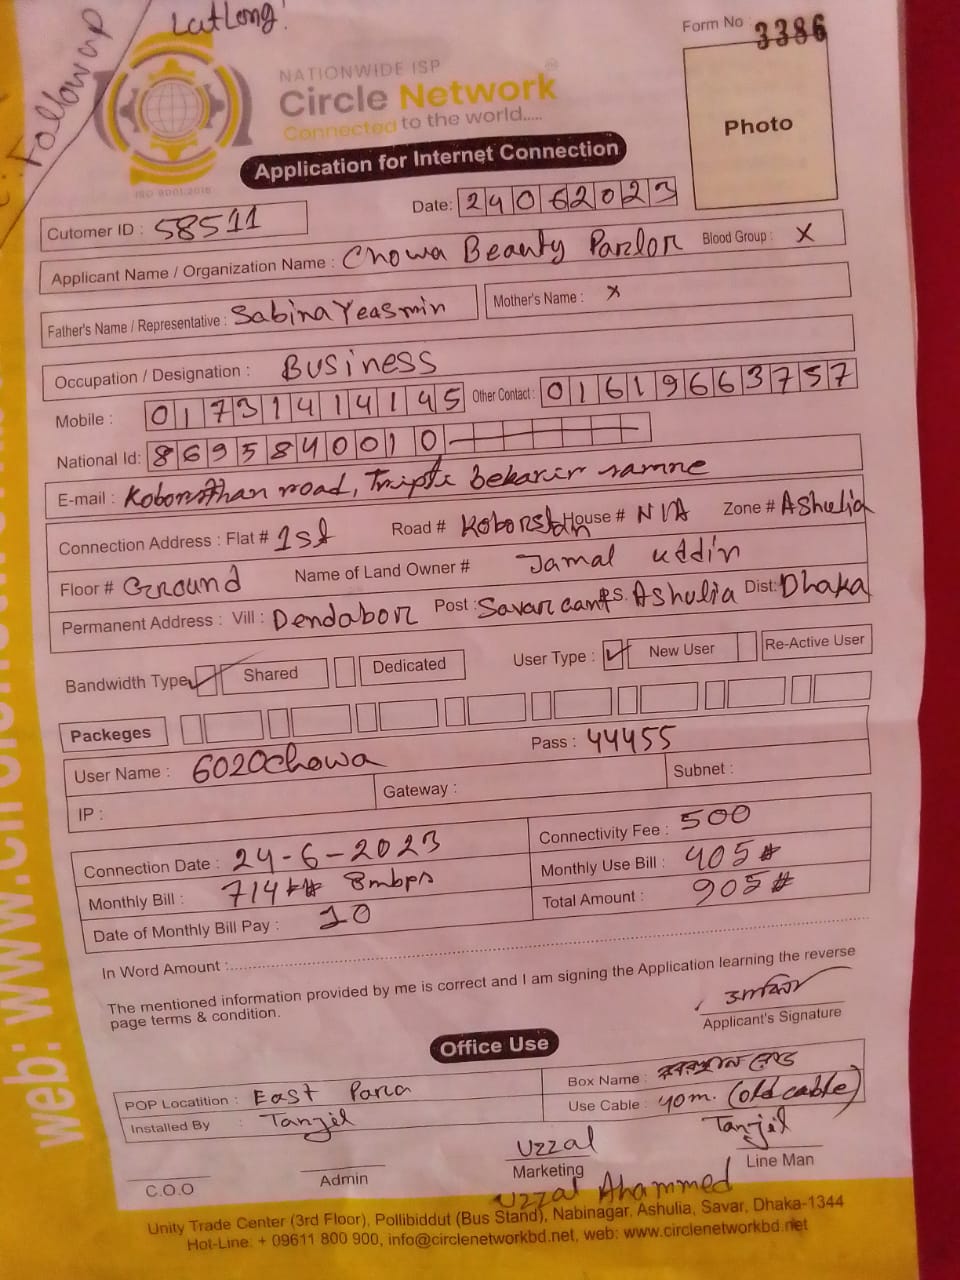 LatLong!
Followap
Form No : 3386
NATIONWIDE ISP
Circle Network
Connected to the world.....
ISO 9001:2015
Photo
Application for Internet Connection
Date: 24062023
Cutomer ID : 58511
Applicant Name / Organization Name : Chowa Beauty Parlor Blood Group : X
Father's Name / Representative : Sabina Yeasmin Mother's Name : X
Occupation / Designation : Business
Mobile : 01731414145 Other Contact : 01619663757
National Id: 8695840010
E-mail : Koborsthan road, Tripti bekarir samne
Connection Address : Flat # 1st Road # Koborsta House # N/A Zone # Ashulia
Floor # Ground Name of Land Owner # Jamal Uddin
Permanent Address : Vill : Dendabor Post : Savar cant P.S. Ashulia Dist: Dhaka
Bandwidth Type ✓ Shared Dedicated User Type : ✓ New User Re-Active User
Packeges
User Name : 6020chowa Pass : 44455
IP : Gateway : Subnet :
Connection Date : 24-6-2023 Connectivity Fee : 500
Monthly Bill : 714 8mbps Monthly Use Bill : 405#
Date of Monthly Bill Pay : 10 Total Amount : 905#
In Word Amount :
The mentioned information provided by me is correct and I am signing the Application learning the reverse
page terms & condition.
Applicant's Signature
Office Use
POP Locatition : East Para Box Name : কবরস্থান রোড
Installed By : Tanjil Use Cable : 40m. (old cable)
Uzzal Tanjil
C.O.O Admin Marketing Line Man
Uzzal Ahammed
Unity Trade Center (3rd Floor), Pollibiddut (Bus Stand), Nabinagar, Ashulia, Savar, Dhaka-1344
Hot-Line: + 09611 800 900, info@circlenetworkbd.net, web: www.circlenetworkbd.net